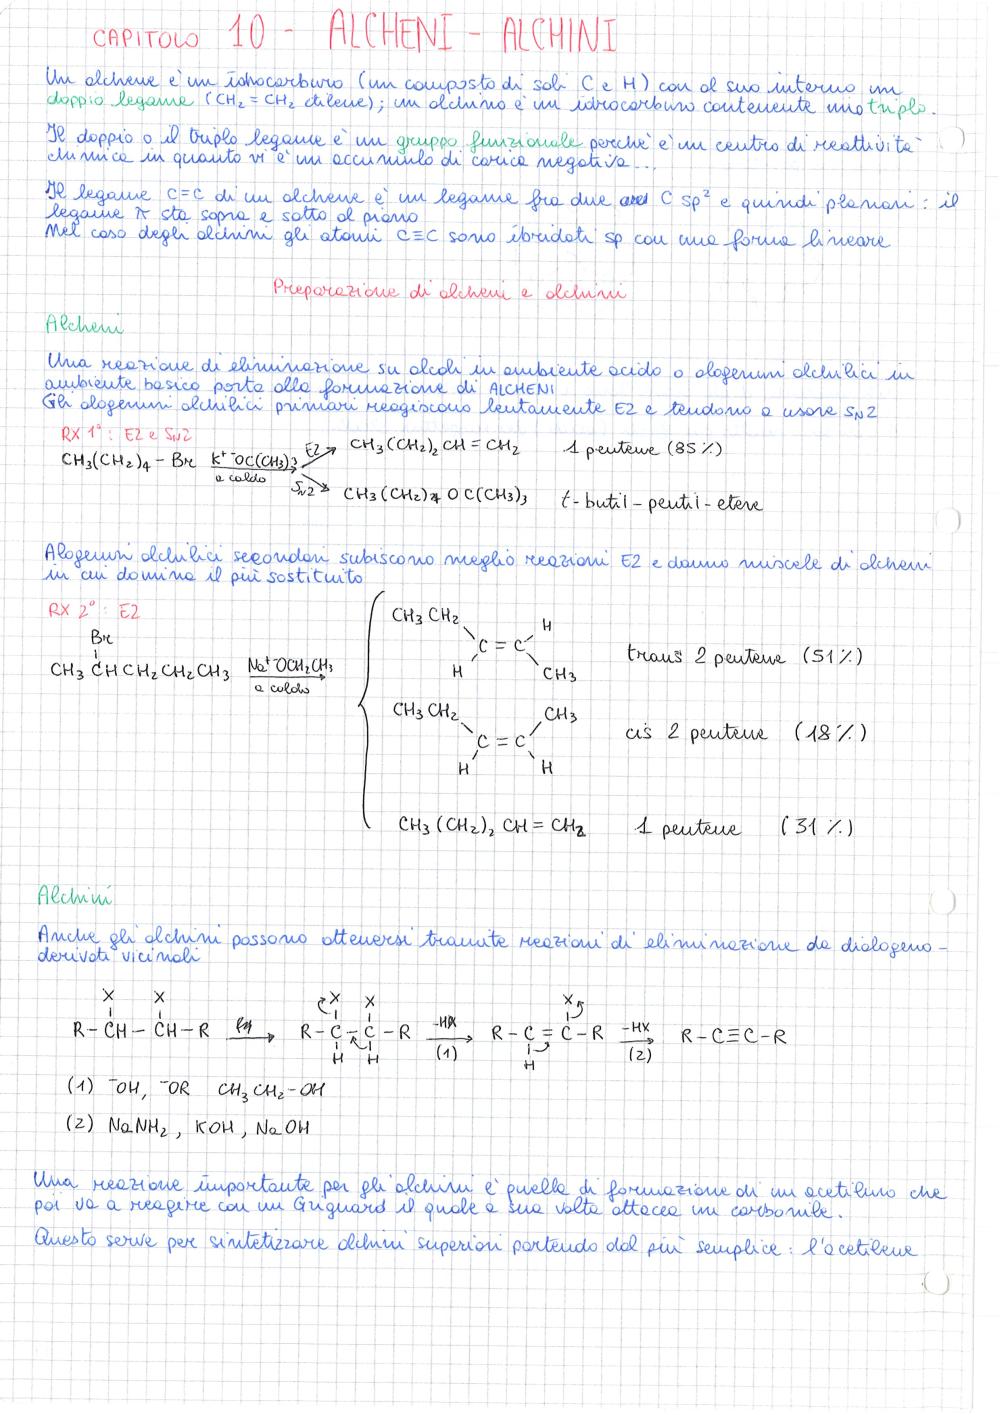 CAPITOLO 10 - ALCHENI - ALCHINI
Un alchene è un idrocarburo (un composto di soli C e H) con al suo interno un
doppio legame (CH₂ = CH₂ etilene); un alchino è un idrocarburo contenente uno triplo.
Il doppio o il triplo legame è un gruppo funzionale perché è un centro di reattività
chimica in quanto vi è un accumulo di carica negativa...
Il legame C=C di un alchene è un legame fra due C sp² e quindi planari: il
legame π sta sopra e sotto al piano
Nel caso degli alchini gli atomi C≡C sono ibridati sp con una forma lineare
Preparazione di alcheni e alchini
Alcheni
Una reazione di eliminazione su alcoli in ambiente acido o alogenuri alchilici in
ambiente basico porta alla formazione di ALCHENI
Gli alogenuri alchilici primari reagiscono lentamente E2 e tendono a usare SN2
RX 1°: E2 e SN2
CH₃(CH₂)₄ - Br K⁺ ⁻OC(CH₃)₃ a caldo
E2 CH₃(CH₂)₂CH = CH₂ 1 pentene (85%)
SN2 CH₃(CH₂)₄ OC(CH₃)₃ t-butil-pentil-etere
Alogenuri alchilici secondari subiscono meglio reazioni E2 e danno miscele di alcheni
in cui domina il più sostituito
RX 2°: E2
Br
CH₃CHCH₂CH₂CH₃ Na⁺ ⁻OCH₂CH₃ a caldo
CH₃CH₂ H
C = C trans 2 pentene (51%)
H CH₃
CH₃CH₂ CH₃
C = C cis 2 pentene (18%)
H H
CH₃(CH₂)₂CH = CH₂ 1 pentene (31%)
Alchini
Anche gli alchini possono ottenersi tramite reazioni di eliminazione da dialogeno-
derivati vicinali
X X X X X
R - CH - CH - R → R - C - C - R -HX (1) → R - C = C - R -HX (2) → R - C ≡ C - R
H H H
(1) ⁻OH, ⁻OR CH₃CH₂-OH
(2) NaNH₂, KOH, NaOH
Una reazione importante per gli alchini è quella di formazione di un acetiluro che
poi va a reagire con un Griguard il quale a sua volta attacca un carbonile.
Questo serve per sintetizzare alchini superiori partendo dal più semplice: l'acetilene